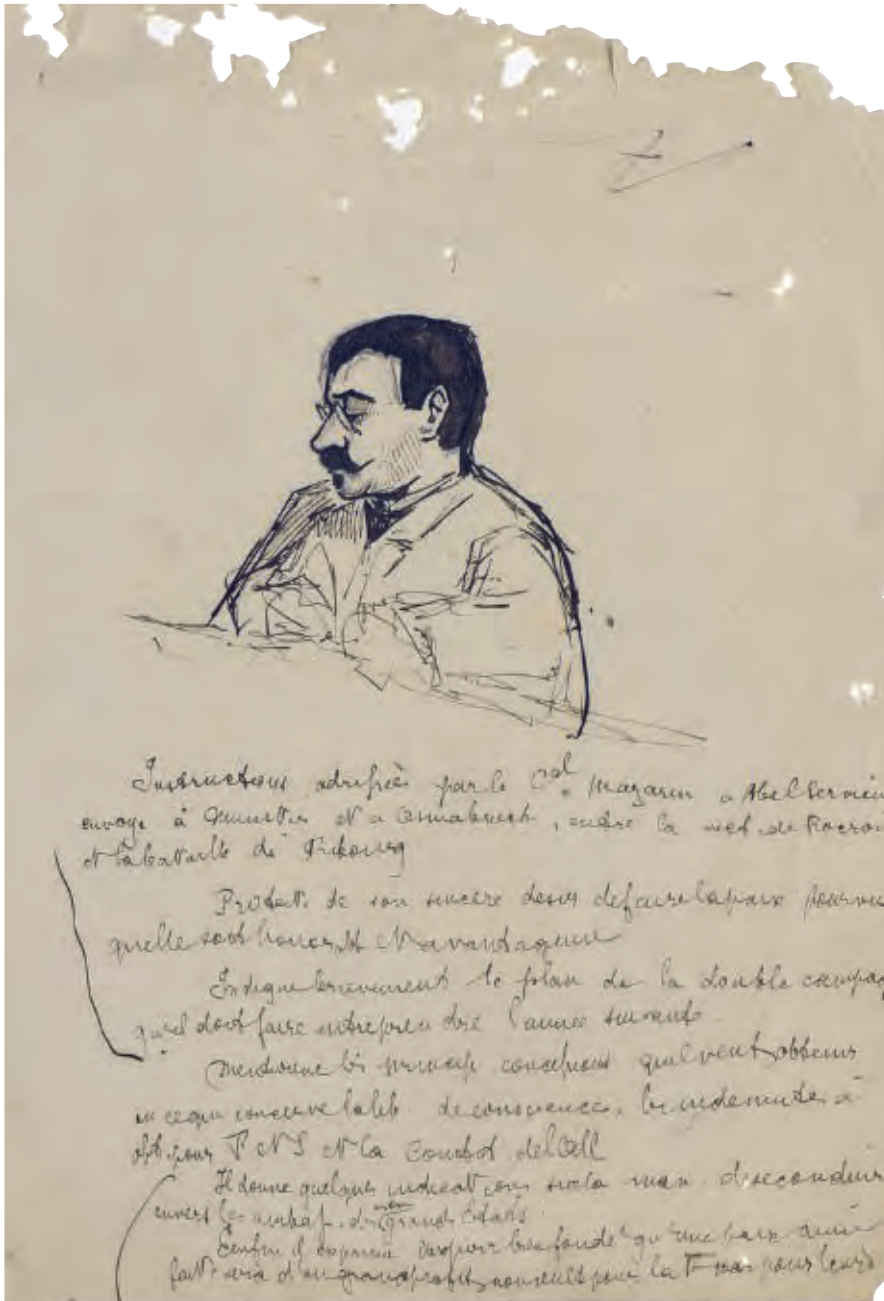 Instructions adressées par le Cal Mazarin a Abel Servien
envoyé à Munster et a Osnabruck, entre la vict. de Rocroi
et la bataille de Fribourg
Protest. de son sincère desir de faire la paix pourvu
quelle soit honorable et avantageuse
Indique brievement le plan de la double campag
qu'il doit faire entreprendre l'annee suivante
Mentionne les princip. concessions qu'il veut obtenir
en ce qui concerne la lib. de conscience, les indemnites à
obt. pour F et S et la Const de l'All
Il donne quelques indications sur la man. de se conduire
envers les ambass. des autres grands Etats
Enfin il exprime l'espoir bien fondé qu'une paix ainsi
faite sera d'un grand profit, non seult pour la F mais pour